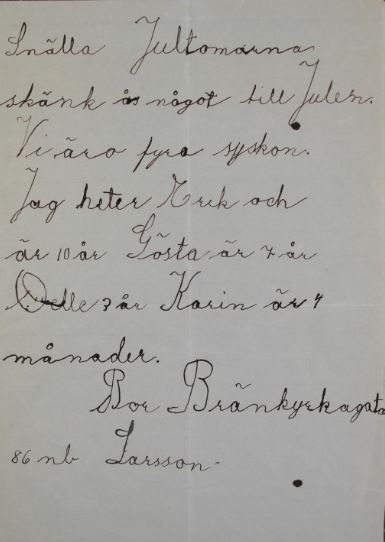 Snälla Jultomarna
skänk ås något till Julen.
Vi äro fyra syskon.
Jag heter Erik och
är 10 år Gösta är 7 år
Olle 3 år Karin är 4
månader.
Bor Bränkyrkagatn
86 nb Larsson.